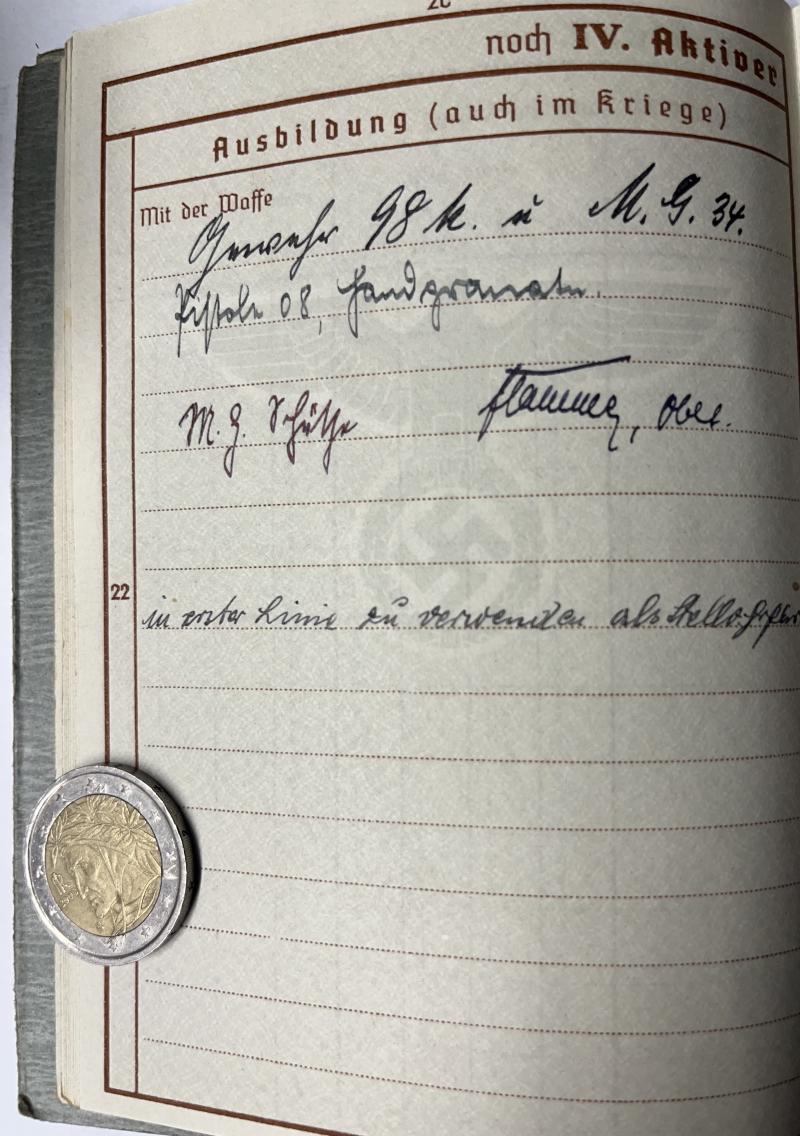 noch IV. Aktiver
Ausbildung (auch im Kriege)
Mit der Waffe
Gewehr 98 k. u M. G. 34.
Pistole 08, Handgranate.
M. G. Schütze
22
in erster Linie zu verwenden als